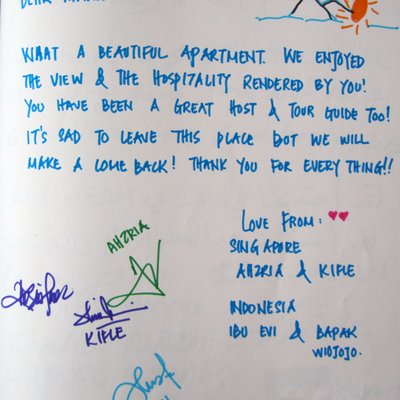 WHAT A BEAUTIFUL APARTMENT. WE ENJOYED
THE VIEW & THE HOSPITALITY RENDERED BY YOU!
YOU HAVE BEEN A GREAT HOST & TOUR GUIDE TOO!
IT'S SAD TO LEAVE THIS PLACE BUT WE WILL
MAKE A COME BACK! THANK YOU FOR EVERYTHING!!
LOVE FROM:
SINGAPORE
AHZRIA & KIFLE
INDONESIA
IBU EVI & BAPAK
WIDJOJO.
AHZRIA
KIFLE